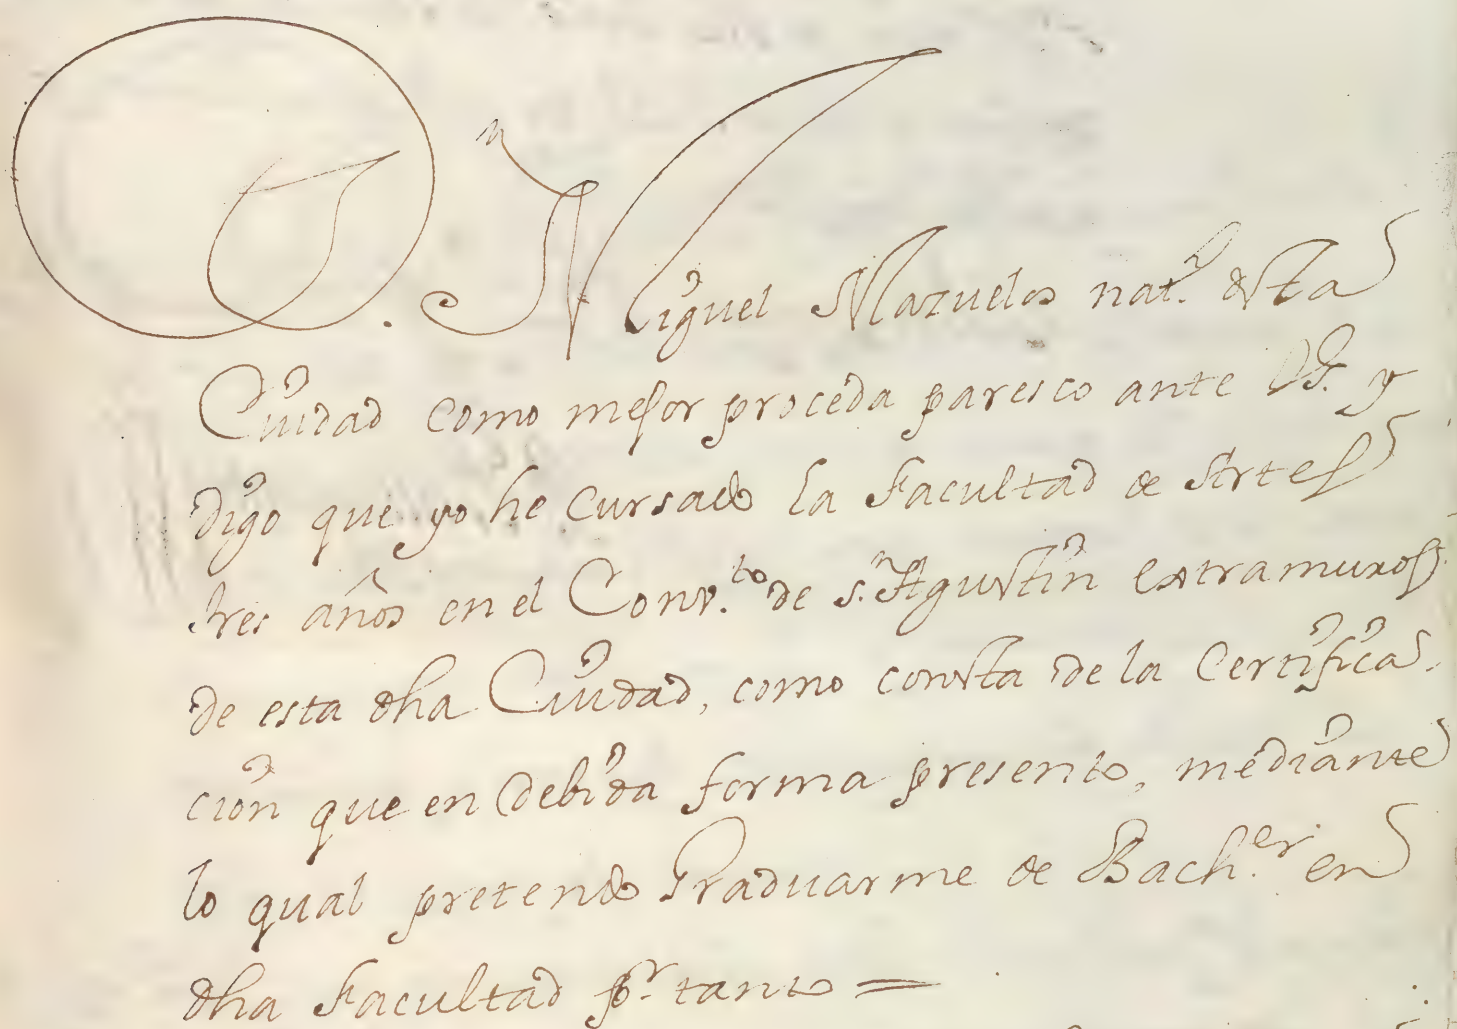 D.ⁿ Miguel Mazuelos nat.ˡ desta
Ciudad como mejor proceda paresco ante VS. y
digo que yo he Cursado la Facultad de Artes
tres años en el Conv.to de s.n Agustin extramuros
de esta dha Ciudad, como consta de la Certifica-
cion que en debida forma presento, mediante
lo qual pretendo Graduarme de Bach.er en
dha Facultad p.r tanto =